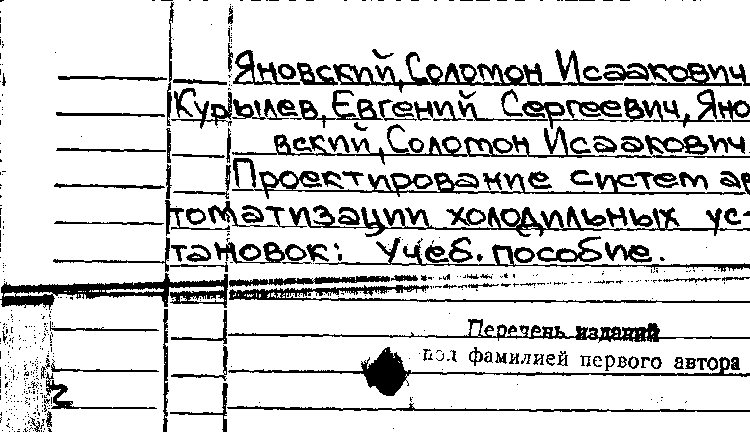 Яновский, Соломон Исаакович
Курылев, Евгений Сергеевич, Яно
вский, Соломон Исаакович
Проектирование систем ав
томатизации холодильных ус-
тановок: Учеб. пособие.
Перечень изданий
под фамилией первого автора